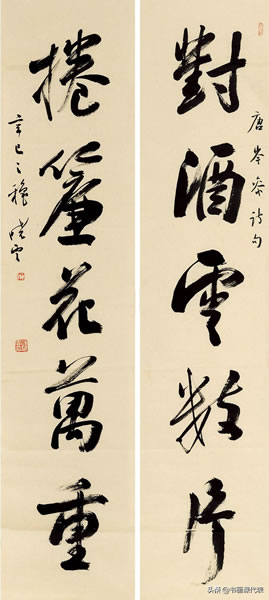 唐岑參詩句
對酒雲數片
捲簾花萬重
辛巳之穐 曉雲
头条 @书画家代表